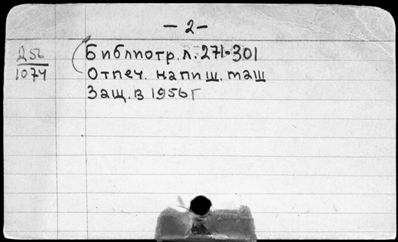 — 2 —
256
1074
Библиогр. л. 271-301
Отпеч. на пиш. маш
Защ. в 1956 г